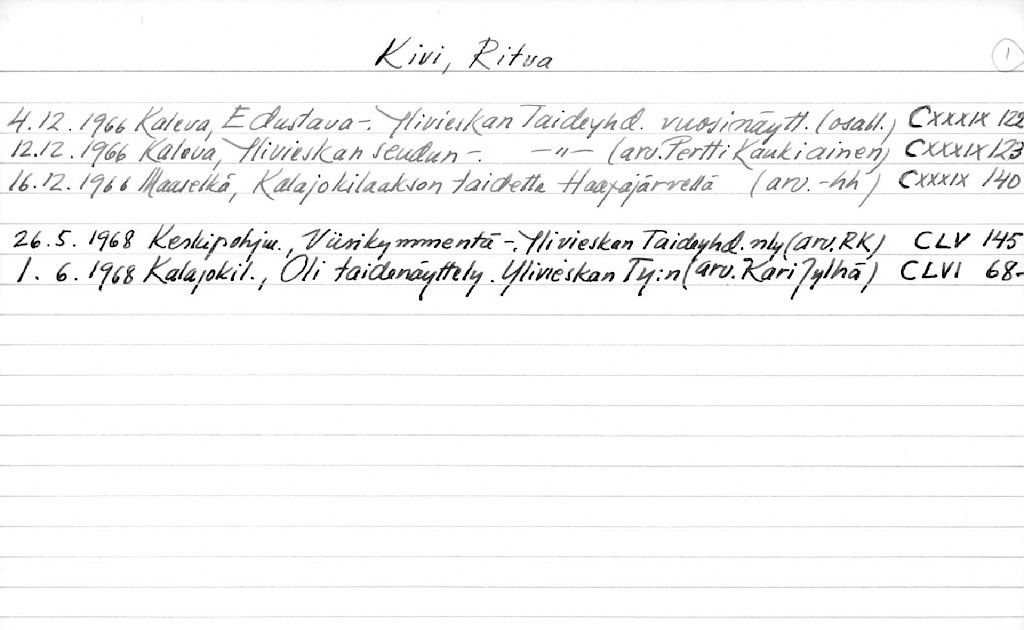 Kivi, Ritva
1
4.12.1966 Kaleva, Edustava-. Ylivieskan Taideyhd. vuosinäytt. (osall.) CXXXIX 122
12.12.1966 Kaleva, Ylivieskan seudun -. -"- (arv. Pertti Kaukiainen) CXXXIX 123
16.12.1966 Maaselkä, Kalajokilaakson taidetta Haapajärvellä (arv. -hh) CXXXIX 140
26.5.1968 Keskipohjm., Viisikymmentä-. Ylivieskan Taideyhd. nly (arv. RK) CLV 145
1.6.1968 Kalajokil., Oli taidenäyttely. Ylivieskan Ty:n (arv. Kari Jylhä) CLVI 68-